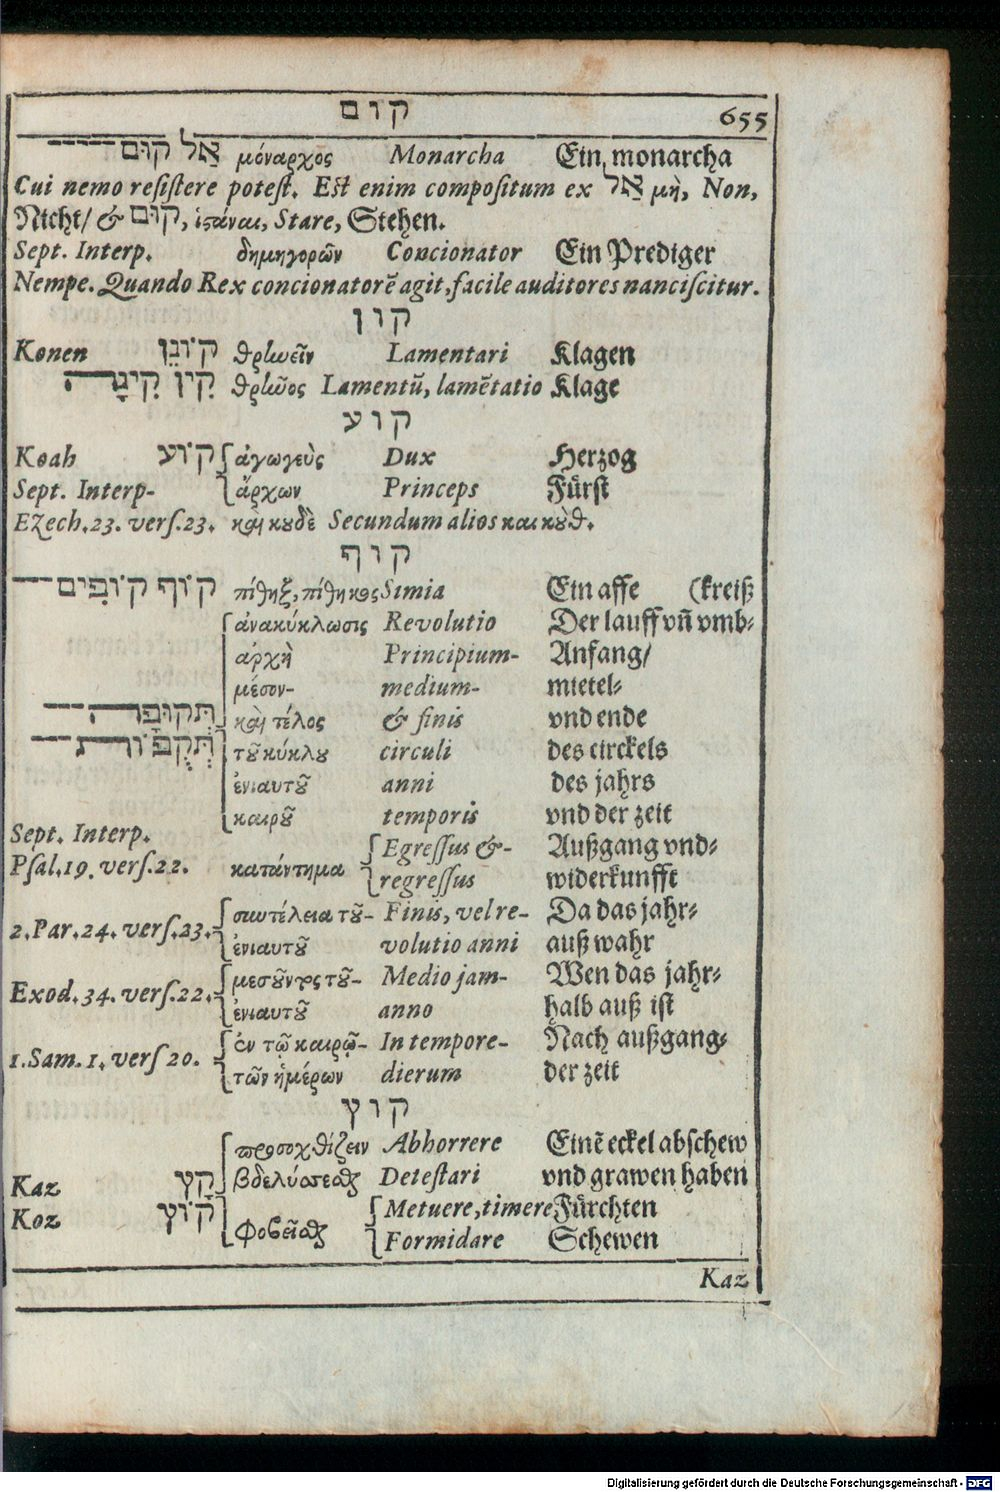 קום
655
אַל קוּם μόναρχος Monarcha Ein monarcha
Cui nemo resistere potest. Est enim compositum ex אַל μὴ, Non,
Nicht/ & קוּם, ἱστάναι, Stare, Stehen.
Sept. Interp. δημηγορῶν Concionator Ein Prediger
Nempe. Quando Rex concionatorē agit, facile auditores nanciscitur.
קון
Konen קוֹנֵן θρηνεῖν Lamentari Klagen
קִין קִינָה θρῆνος Lamentū, lamētatio Klage
קוע
Koah קוֹע ἀγωγεὺς Dux Herzog
Sept. Interp- ἄρχων Princeps Fürst
Ezech. 23. vers. 23. καὶ κουδὲ Secundum alios και κοὺθ.
קוף
קוֹף קוֹפִים πίθηξ, πίθηκος Simia Ein affe (kreiß
ἀνακύκλωσις Revolutio Der lauff vñ vmb-
ἀρχὴ Principium- Anfang/
μέσον- medium- mietel-
תְּקוּפָה καὶ τέλος & finis vnd ende
תְּקֻפוֹת τοῦ κύκλου circuli des circkels
ἐνιαυτοῦ anni des jahrs
καιροῦ temporis vnd der zeit
Sept. Interp. Egressus &- Außgang vnd-
Psal. 19. vers. 22. κατάντημα regressus widerkunfft
2. Par. 24. vers. 23. συντέλεια τοῦ- Finis, vel re- Da das jahr-
ἐνιαυτοῦ volutio anni auß wahr
Exod. 34. vers. 22. μεσοῦντος τοῦ- Medio jam- Wen das jahr-
ἐνιαυτοῦ anno halb auß ist
1. Sam. 1. vers 20. ἐν τῷ καιρῷ- In tempore- Nach außgang-
τῶν ἡμέρων dierum der zeit
קוץ
προσοχθίζειν Abhorrere Einē eckel abschew
Kaz קָץ βδελύσεσθαι Detestari vnd grawen haben
Koz קוֹץ φοβεῖσθαι Metuere, timere Fürchten
Formidare Schewen
Kaz
Digitalisierung gefördert durch die Deutsche Forschungsgemeinschaft - DFG